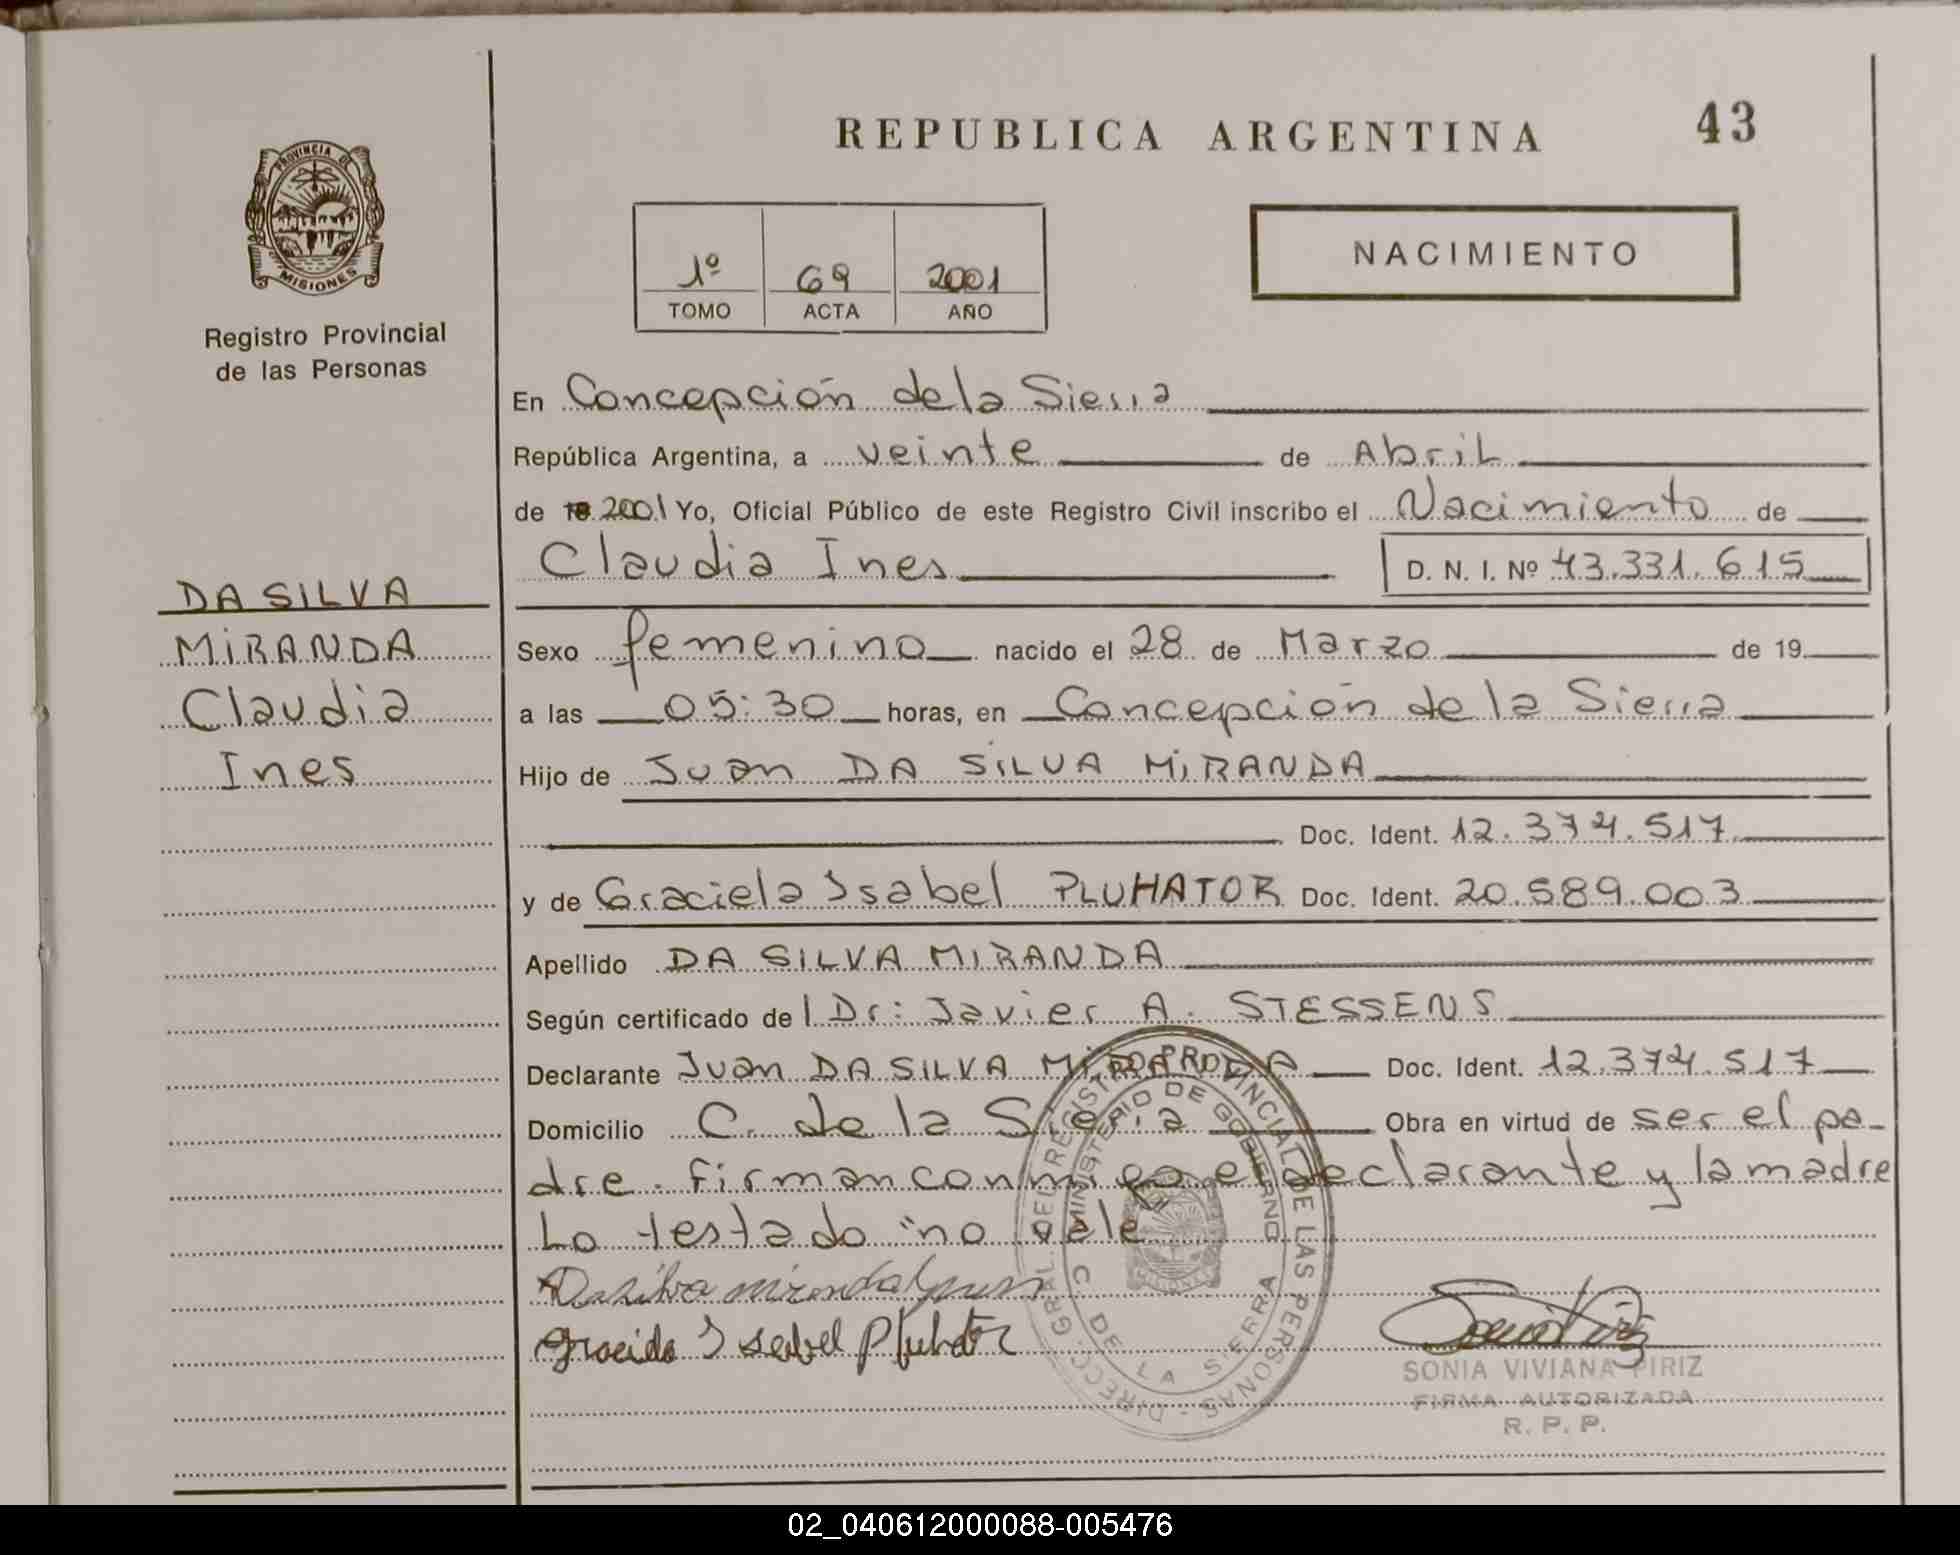 REPUBLICA ARGENTINA 43
PROVINCIA DE MISIONES
Registro Provincial
de las Personas
1º 69 2001
TOMO ACTA AÑO
NACIMIENTO
En Concepción de la Sierra
República Argentina, a veinte de Abril
de 2001 Yo, Oficial Público de este Registro Civil inscribo el Nacimiento de
Claudia Ines D. N. I. Nº 43.331.615
DA SILVA
MIRANDA
Claudia
Ines
Sexo femenino nacido el 28 de Marzo de 19
a las 05:30 horas, en Concepción de la Sierra
Hijo de Juan DA SILVA MIRANDA
Doc. Ident. 12.374.517
y de Graciela Isabel PLUHATOR Doc. Ident. 20.589.003
Apellido DA SILVA MIRANDA
Según certificado del Dr: Javier A. STESSENS
Declarante Juan DA SILVA MIRANDA Doc. Ident. 12.374.517
Domicilio C. de la Sierra Obra en virtud de ser el pa-
dre. Firman conmigo el declarante y la madre
Lo testado "no vale
Da silva miranda Juan
Graciela Isabel Pluhator
DIRECC. GRAL. DEL REGISTRO PROVINCIAL DE LAS PERSONAS
MINISTERIO DE GOBIERNO
C. DE LA SIERRA
SONIA VIVIANA PIRIZ
FIRMA AUTORIZADA
R. P. P.
02_040612000088-005476